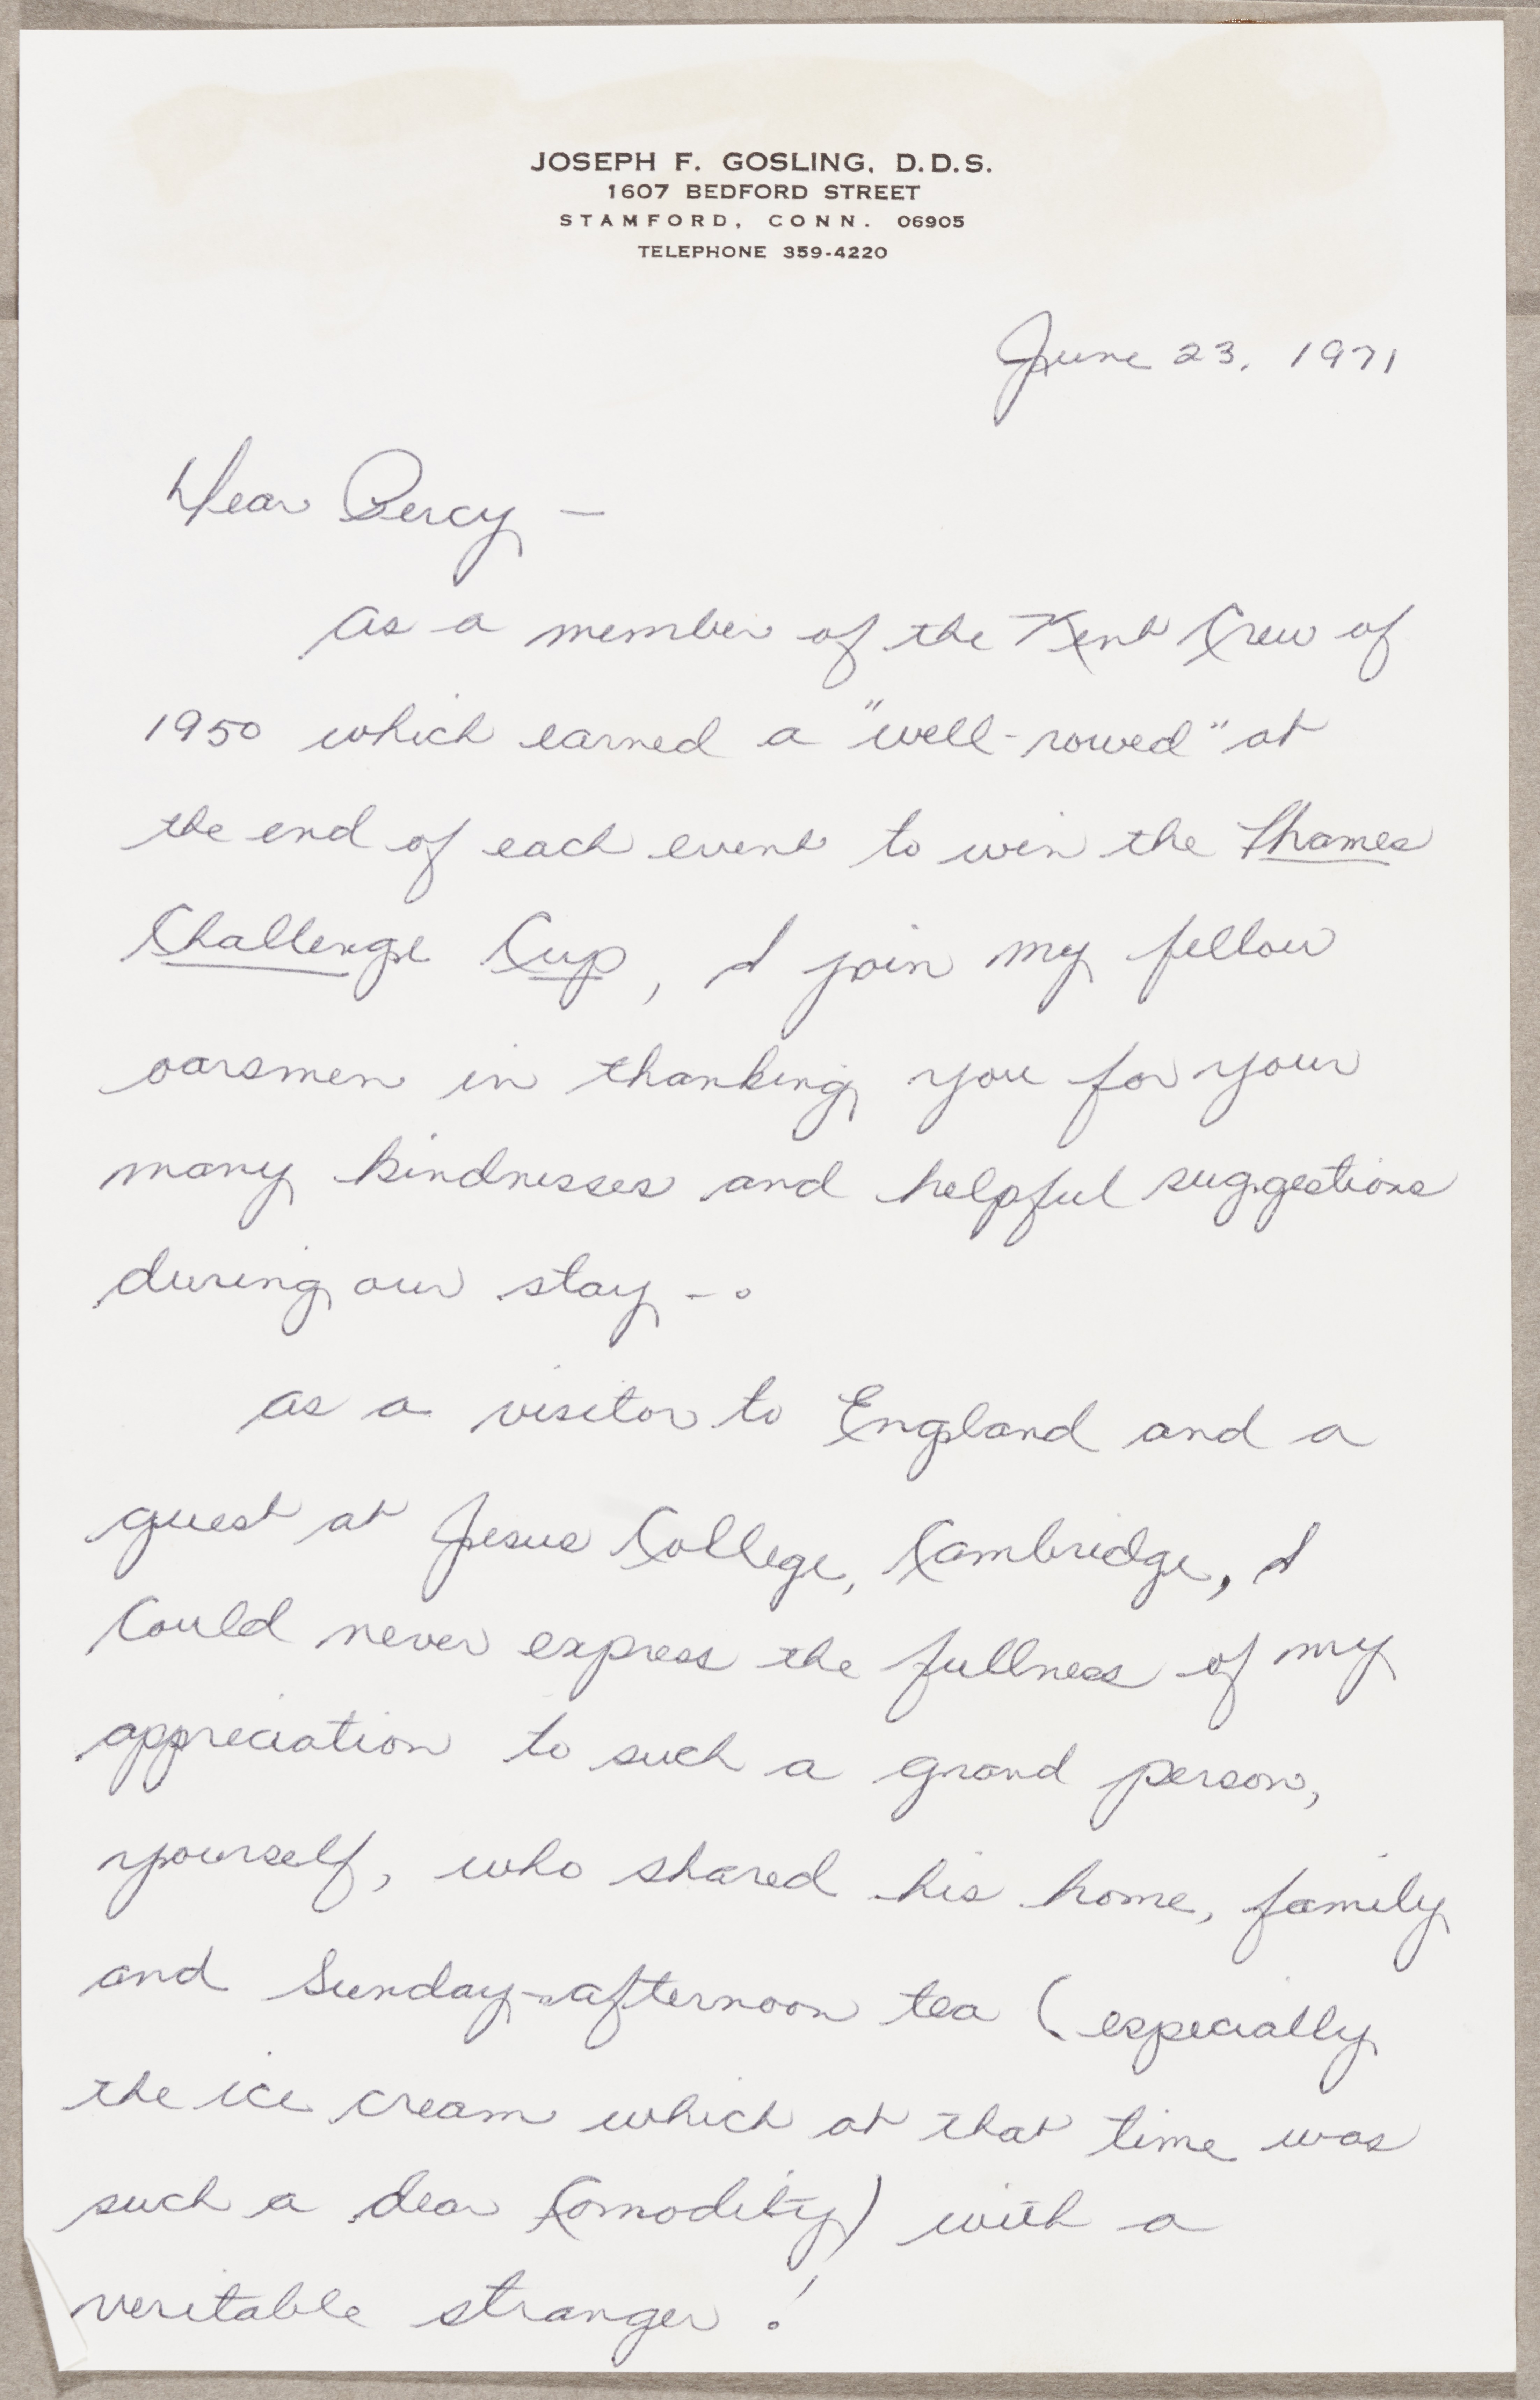 JOSEPH F. GOSLING, D.D.S.
1607 BEDFORD STREET
STAMFORD, CONN. 06905
TELEPHONE 359-4220
June 23, 1971
Dear Percy –
As a member of the Kent Crew of
1950 which earned a "well-rowed" at
the end of each event to win the Thames
Challenge Cup, I join my fellow
oarsmen in thanking you for your
many kindnesses and helpful suggestions
during our stay –.
As a visitor to England and a
guest at Jesus College, Cambridge, I
could never express the fullness of my
appreciation to such a grand person,
yourself, who shared his home, family
and Sunday-afternoon tea (especially
the ice cream which at that time was
such a dear comodity) with a
veritable stranger!